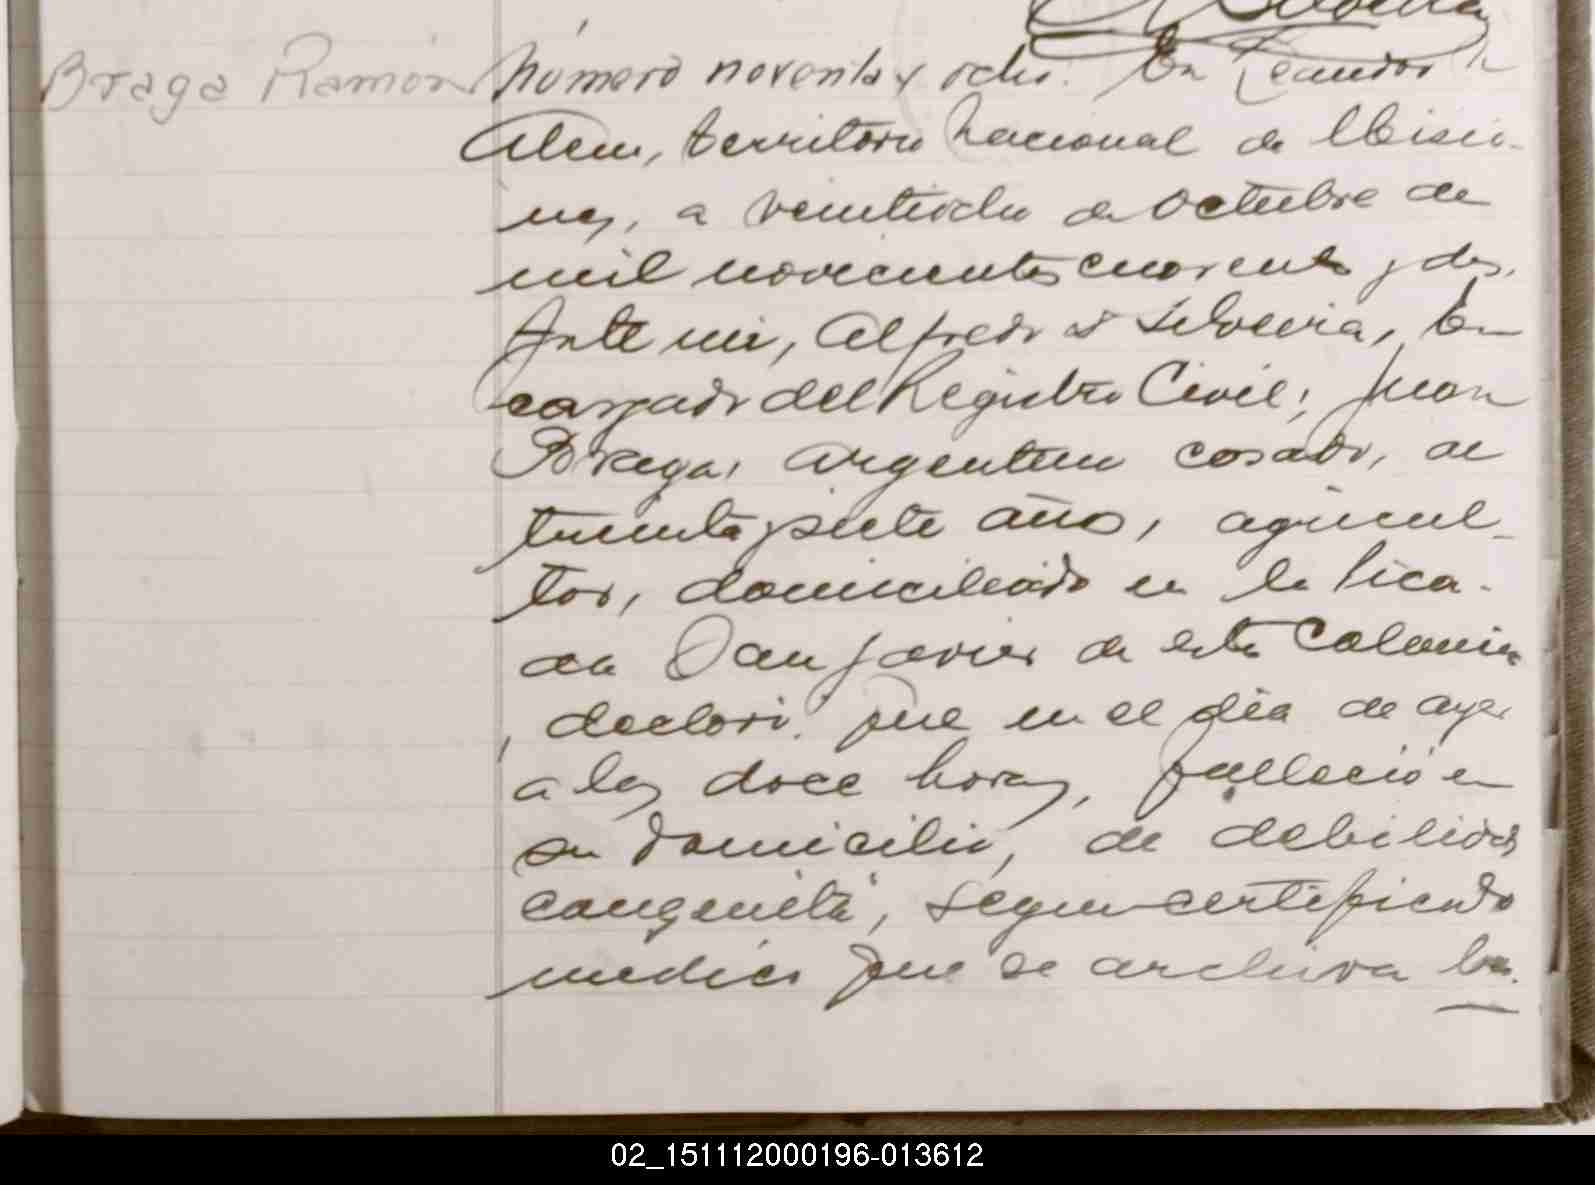 Silveira
Braga Ramón
Número noventa y ocho. En Leandro N
Alem, territorio Nacional de Misio-
nes, a veintiocho de Octubre de
mil novecientos cuarenta y dos.
Ante mi, Alfredo S Silveira, En
cargado del Registro Civil; Juan
Braga, argentino casado, de
treinta y siete años, agricul-
tor, domiciliado en la Pica-
da San Javier de esta Colonia
, declaró: Que en el día de ayer
a las doce horas, falleció en
su domicilio, de debilidad
congenita, segun certificado
medico que se archiva ba.
02_151112000196-013612